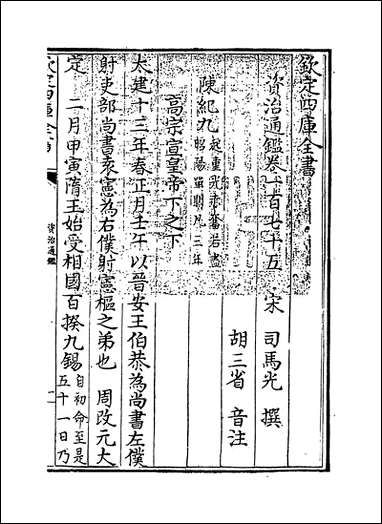 欽定四庫全書
資治通鑑卷一百七十五
宋 司馬光 撰
胡三省 音注
陳紀九起重光赤奮若盡
昭陽單閼凡三年
高宗宣皇帝下之下
太建十三年春正月壬午以晉安王伯恭為尚書左僕
射吏部尚書袁憲為右僕射憲樞之弟也 周改元大
定 二月甲寅隋王始受相國百揆九錫自初命至是
五十一日乃
欽定四庫全書
資治通鑑